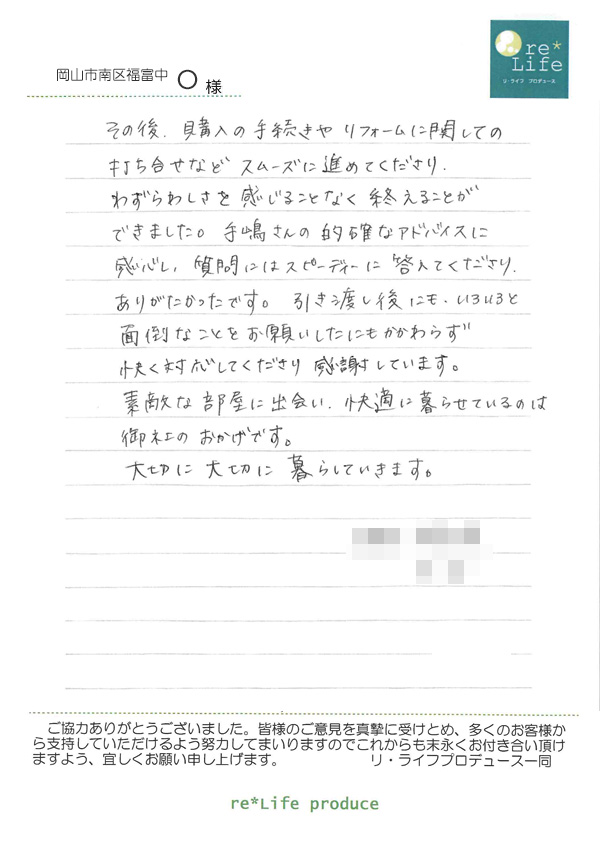 岡山市南区福富中 〇 様
re*
Life
リ・ライフ プロデュース
その後、購入の手続きや リフォームに関しての
打ち合せなど スムーズに進めてくださり、
わずらわしさを感じることなく 終えることが
できました。手嶋さんの的確なアドバイスに
感心し、質問にはスピーディーに答えてくださり、
ありがたかったです。引き渡し後にも、いろいろと
面倒なことをお願いしたにもかかわらず
快く対応してくださり 感謝しています。
素敵な部屋に出会い、快適に暮らせているのは
御社のおかげです。
大切に 大切に 暮らしていきます。
ご協力ありがとうございました。皆様のご意見を真摯に受けとめ、多くのお客様か
ら支持していただけるよう努力してまいりますのでこれからも末永くお付き合い頂け
ますよう、宜しくお願い申し上げます。 リ・ライフプロデュース一同
re*Life produce